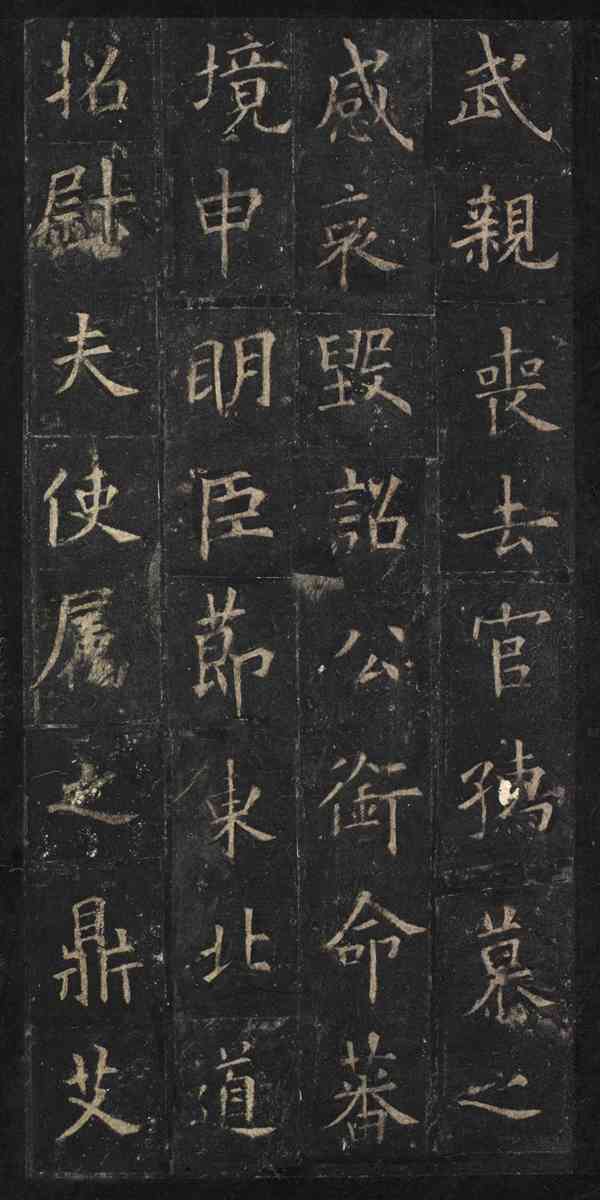 武親喪去官孺慕之
感哀毀詔公銜命蕃
境申明臣節東北道
招慰夫使属之鼎艾